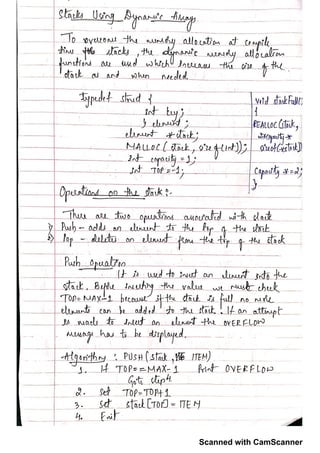 Stacks Using Dynamic Arrays
To overcome the memory allocation at compile
time the stacks, the dynamic memory allocation
functions are used which increases the size of the
stack as and when needed.
typedef struct {
int key;
} element;
element *stack;
MALLOC (stack, sizeof(int));
int capacity = 1;
int TOP = -1;
void stackFull()
{
REALLOC (stack,
2*capacity *
sizeof(*stack))
capacity *= 2;
}
Operations on the stack :-
There are two operations associated with stack
1) Push - adds an element to the top of the stack
2) Pop - deletes an element from the top of the stack
Push operation
It is used to insert an element into the
stack. Before inserting the value we must check
TOP=MAX-1 because if the stack is full no more
elements can be added to the stack. If an attempt
is made to insert an element the OVERFLOW
message has to be displayed.
Algorithm : PUSH (stack, ITEM)
1. If TOP == MAX-1 Print OVERFLOW
Goto step 4
2. Set TOP=TOP+1
3. Set stack[TOP] = ITEM
4. Exit
Scanned with CamScanner